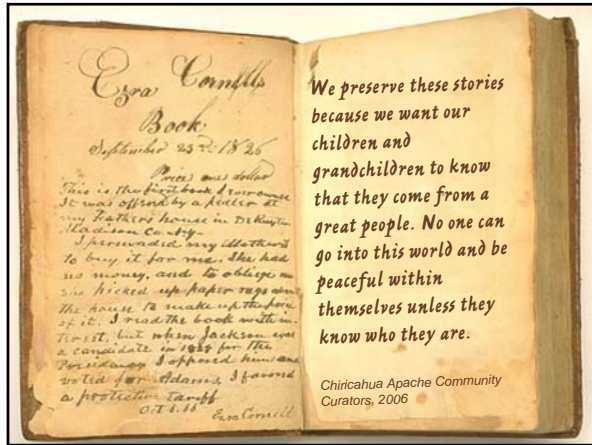 Ezra Cornells
Book
September 23rd 1826
Price one dollar
This is the first book I ever owned
It was offered by a pedler at
my Fathers house in DeRuyter
Madison Co. NY.
I persuaded my Mother
to buy it for me. She had
no money, and to oblige me
she picked up paper rags about
the house to make up the price
of it. I read the book with in-
terest, but when Jackson was
a candidate in 1828 for the
Presidency I opposed him and
voted for Adams, I favored
a protective tariff
Ezra Cornell
We preserve these stories
because we want our
children and
grandchildren to know
that they come from a
great people. No one can
go into this world and be
peaceful within
themselves unless they
know who they are.
Chiricahua Apache Community
Curators, 2006